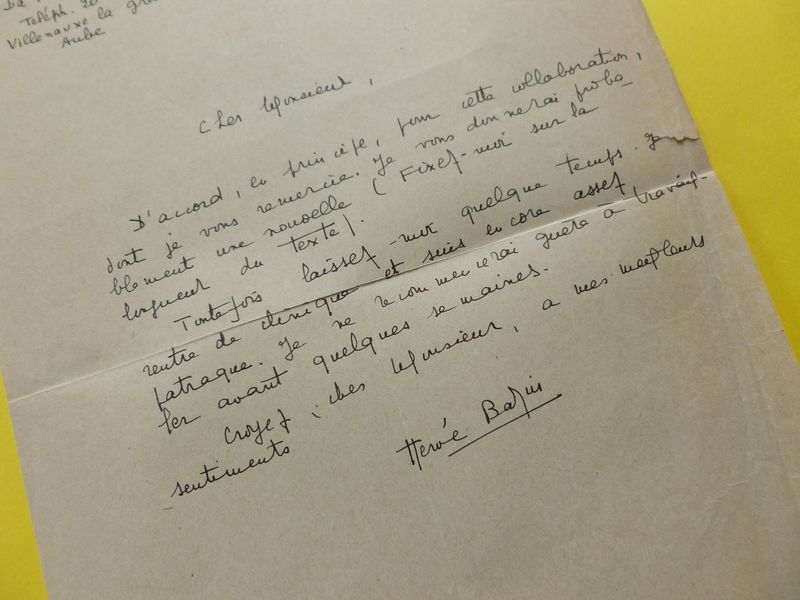 Teléph. 20
Villenauxe la gra
Aube
Cher Monsieur,
D'accord, en principe, pour cette collaboration,
dont je vous remercie. Je vous donnerai proba-
blement une nouvelle (Fixez-moi sur la
longueur du texte).
Toutefois laissez-moi quelque temps. Je
rentre de clinique et suis encore assez
patraque. Je ne recommencerai guère à travail-
ler avant quelques semaines.
Croyez, cher Monsieur, à mes meilleurs
sentiments
Hervé Bazin